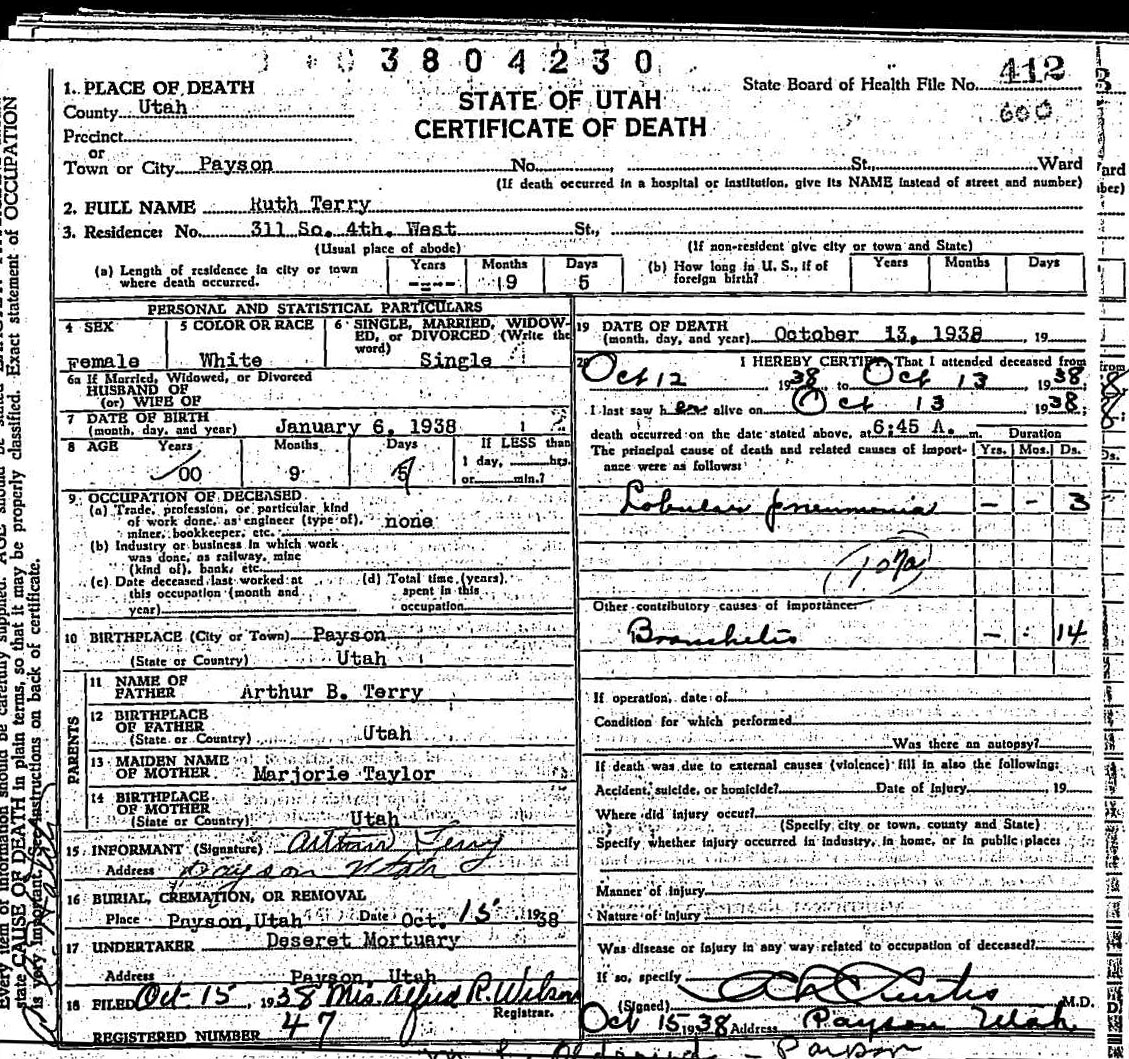 3804230
State Board of Health File No. 412
600
STATE OF UTAH
CERTIFICATE OF DEATH
1. PLACE OF DEATH
County Utah
Precinct
or
Town or City Payson No. St. Ward
(If death occurred in a hospital or institution, give its NAME instead of street and number)
2. FULL NAME Ruth Terry
3. Residence: No. 311 So. 4th. West St.,
(Usual place of abode) (If non-resident give city or town and State)
(a) Length of residence in city or town where death occurred. Years ---- Months 9 Days 5
(b) How long in U. S., if of foreign birth? Years Months Days
PERSONAL AND STATISTICAL PARTICULARS
4 SEX Female
5 COLOR OR RACE White
6 SINGLE, MARRIED, WIDOWED, or DIVORCED (Write the word) Single
6a If Married, Widowed, or Divorced
HUSBAND OF
(or) WIFE OF
7 DATE OF BIRTH
(month, day, and year) January 6, 1938
8 AGE Years 00 Months 9 Days
If LESS than
1 day, hrs.
or min.?
9 OCCUPATION OF DECEASED
(a) Trade, profession, or particular kind
of work done, as engineer (type of), none
miner, bookkeeper, etc.
(b) Industry or business in which work
was done, as railway, mine
(kind of), bank, etc.
(c) Date deceased last worked at
this occupation (month and
year)
(d) Total time (years)
spent in this
occupation
10 BIRTHPLACE (City or Town) Payson
(State or Country) Utah
PARENTS
11 NAME OF
FATHER Arthur B. Terry
12 BIRTHPLACE
OF FATHER
(State or Country) Utah
13 MAIDEN NAME
OF MOTHER Marjorie Taylor
14 BIRTHPLACE
OF MOTHER
(State or Country) Utah
15 INFORMANT (Signature) Arthur Terry
Address Payson Utah
16 BURIAL, CREMATION, OR REMOVAL
Place Payson, Utah Date Oct. 15 1938
17 UNDERTAKER Deseret Mortuary
Address Payson Utah
18 FILED Oct 15, 1938 Mrs. Alfred R. Wilson
Registrar.
REGISTERED NUMBER 47
19 DATE OF DEATH
(month, day, and year) October 13, 1938, 19
20 I HEREBY CERTIFY, That I attended deceased from
Oct 12 1938 to Oct 13 1938
I last saw her alive on Oct 13 1938;
death occurred on the date stated above, at 6:45 A. m. Duration
The principal cause of death and related causes of importance were as follows: Yrs. Mos. Ds.
Lobular pneumonia - - 3
107a
Other contributory causes of importance:
Bronchetis - - 14
If operation, date of
Condition for which performed
Was there an autopsy?
If death was due to external causes (violence) fill in also the following:
Accident, suicide, or homicide? Date of injury 19
Where did injury occur?
(Specify city or town, county and State)
Specify whether injury occurred in industry, in home, or in public place:
Manner of injury
Nature of injury
Was disease or injury in any way related to occupation of deceased?
If so, specify
(Signed) Curtis M.D.
Oct 15 1938 Address Payson Utah
Every item of information should be carefully supplied. AGE should be stated
state CAUSE OF DEATH in plain terms, so that it may be properly classified. Exact statement of OCCUPATION
is very important. See instructions on back of certificate.